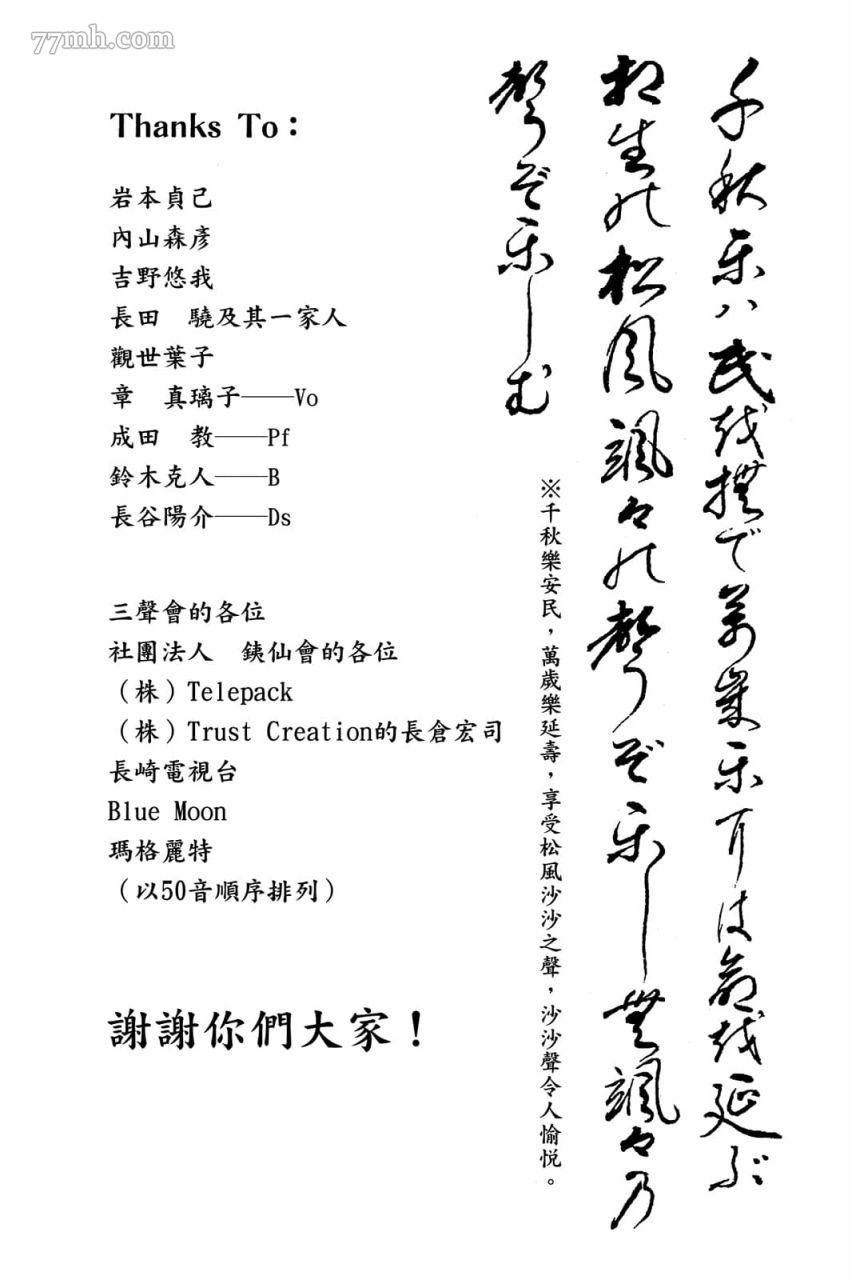 77mh.com
千秋楽ハ民越撫で萬歳楽耳は命越延ぶ
相生能松風颯々能聲ぞ楽し無颯々乃
聲ぞ楽しむ
※千秋樂安民，萬歲樂延壽，享受松風沙沙之聲，沙沙聲令人愉悅。
Thanks To：
岩本貞己
內山森彥
吉野悠我
長田　驍及其一家人
觀世葉子
章　真璃子──Vo
成田　教──Pf
鈴木克人──B
長谷陽介──Ds
三聲會的各位
社團法人　銕仙會的各位
（株）Telepack
（株）Trust Creation的長倉宏司
長崎電視台
Blue Moon
瑪格麗特
（以50音順序排列）
謝謝你們大家！